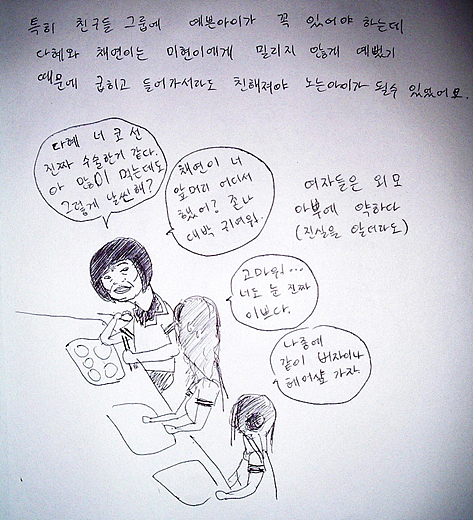 특히 친구들 그룹에 예쁜아이가 꼭 있어야 하는데
다혜와 채연이는 미현이에게 밀리지 않게 예뻤기
때문에 굽히고 들어가서라도 친해져야 노는아이가 될수 있었어요.
다혜 너 코 선
진짜 수술한거 같다.
아 많이 먹는데도
그렇게 날씬해?
채연이 너
앞머리 어디서
했어? 존나
대박 귀여워.
여자들은 외모
아부에 약하다
(진실을 알더라도)
고마워...
너도 눈 진짜
이쁘다.
나중에
같이 버자이나
헤어샵 가자.